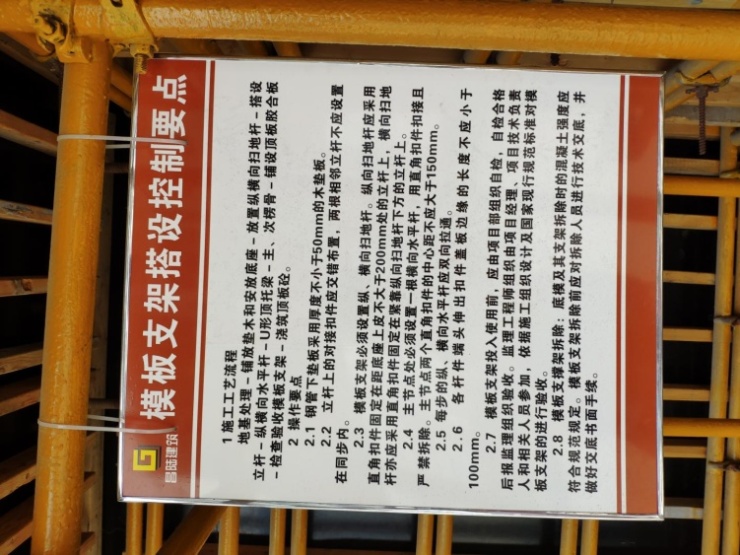 昌陆建筑
模板支架搭设控制要点
1 施工工艺流程
地基处理－铺放垫木和安放底座－放置纵横向扫地杆－搭设
立杆－纵横向水平杆－U形顶托梁－主、次楞骨－铺设顶板胶合板
－检查验收模板支架－浇筑顶板砼。
2 操作要点
2.1 钢管下垫板采用厚度不小于50mm的木垫板。
2.2 立杆上的对接扣件应交错布置，两根相邻立杆不应设置
在同步内。
2.3 模板支架必须设置纵、横向扫地杆。纵向扫地杆应采用
直角扣件固定在距底座上皮不大于200mm处的立杆上，横向扫地
杆亦应采用直角扣件固定在紧靠纵向扫地杆下方的立杆上。
2.4 主节点处必须设置一根横向水平杆，用直角扣件扣接且
严禁拆除。主节点两个直角扣件的中心距不应大于150mm。
2.5 每步的纵、横向水平杆应双向拉通。
2.6 各杆件端头伸出扣件盖板边缘的长度不应小于
100mm。
2.7 模板支架投入使用前，应由项目部组织自检，自检合格
后报监理组织验收。监理工程师组织由项目经理、项目技术负责
人和相关人员参加，依据施工组织设计及国家现行规范标准对模
板支架的进行验收。
2.8 模板支撑架拆除：底模及其支架拆除时的混凝土强度应
符合规范规定。模板支架拆除前应对拆除人员进行技术交底，并
做好交底书面手续。